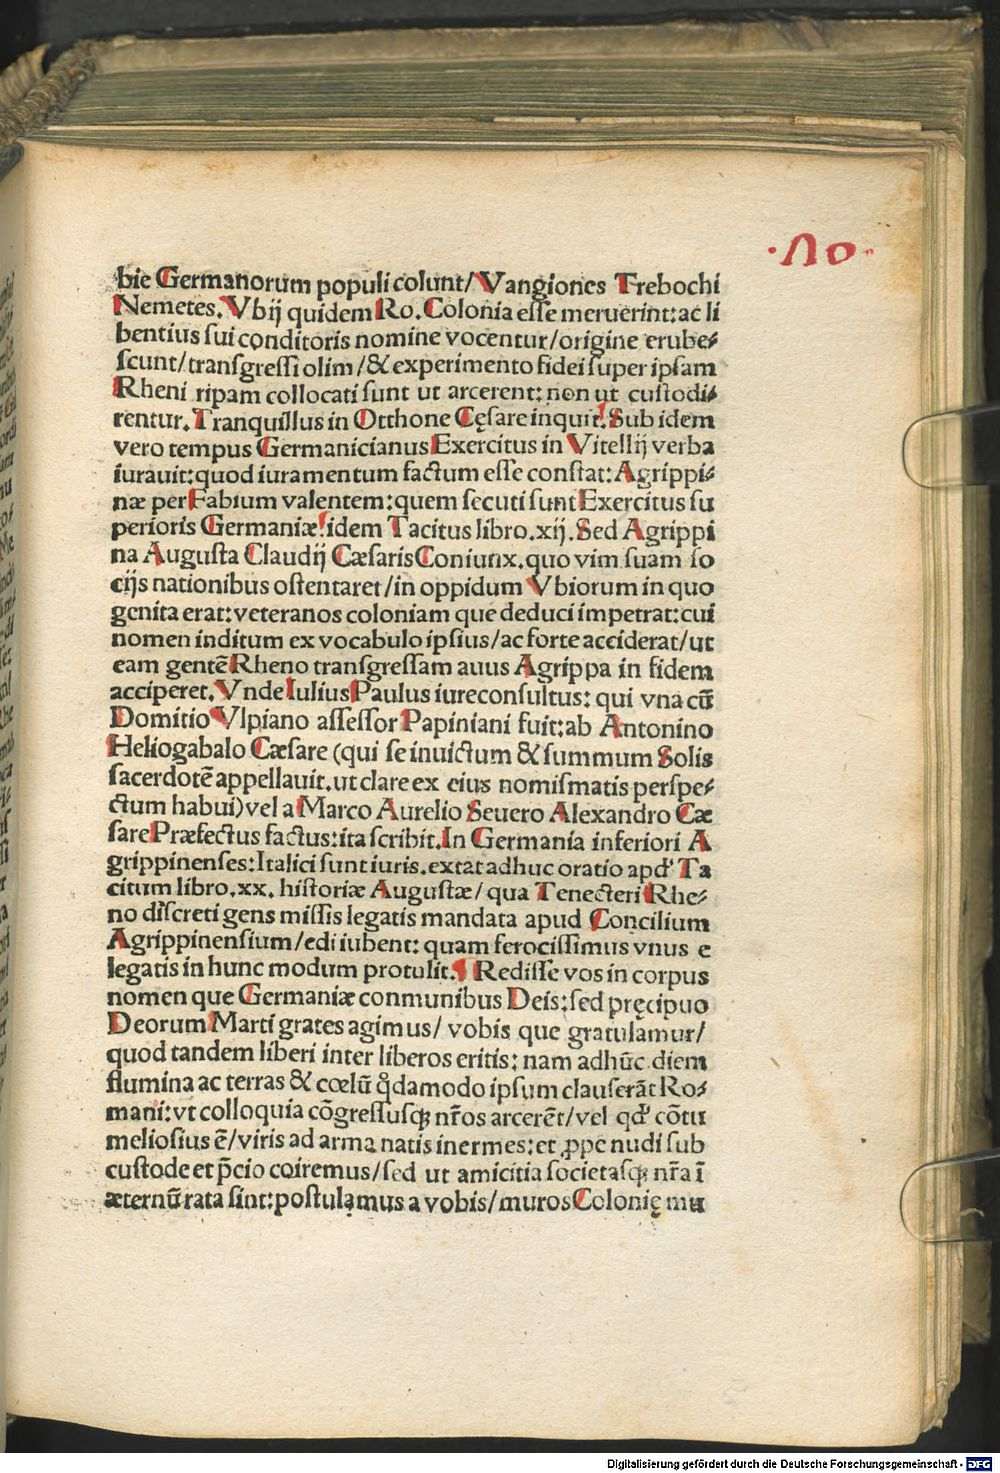 ·Λ0·
bie Germanorum populi colunt/Vangiones Trebochi
Nemetes. Vbij quidem Ro. Colonia eſſe meruerint: ac li
bentius ſui conditoris nomine vocentur/origine erube⸗
ſcunt/tranſgreſſi olim/& experimento fidei ſuper ipſam
Rheni ripam collocati ſunt ut arcerent: non ut cuſtodi⸗
rentur. Tranquillus in Otthone Cęſare inquit! Sub idem
vero tempus Germanicianus Exercitus in Vitellij verba
iurauit: quod iuramentum factum eſſe conſtat: Agrippi⸗
næ per Fabium valentem: quem ſecuti ſunt Exercitus ſu
perioris Germaniæ! idem Tacitus libro. xij. Sed Agrippi
na Auguſta Claudij Cæſaris Coniunx. quo vim ſuam ſo
cijs nationibus oſtentaret/in oppidum Vbiorum in quo
genita erat: veteranos coloniam que deduci impetrat: cui
nomen inditum ex vocabulo ipſius/ac forte acciderat/ut
eam gentē Rheno tranſgreſſam auus Agrippa in fidem
acciperet. Vnde Iulius Paulus iureconſultus: qui vna cū
Domitio Vlpiano aſſeſſor Papiniani fuit: ab Antonino
Heliogabalo Cæſare (qui ſe inuictum & ſummum Solis
ſacerdotē appellauit. ut clare ex eius nomiſmatis perſpe⸗
ctum habui) vel a Marco Aurelio Seuero Alexandro Cæ
ſare Præfectus factus: ita ſcribit. In Germania inferiori A
grippinenſes: Italici ſunt iuris. extat adhuc oratio apd' Ta
citum libro. xx. hiſtoriæ Auguſtæ/ qua Tenecteri Rhe⸗
no diſcreti gens miſſis legatis mandata apud Concilium
Agrippinenſium/edi iubent: quam ferociſſimus vnus e
legatis in hunc modum protulit. ¶ Rediſſe vos in corpus
nomen que Germaniæ conmunibus Deis: ſed pręcipuo
Deorum Marti grates agimus/ vobis que gratulamur/
quod tandem liberi inter liberos eritis: nam adhūc diem
flumina ac terras & cœlū q̊damodo ipſum clauſerāt Ro⸗
mani: vt colloquia cōgreſſuſqꝫ nr̄os arcerēt/vel qd' cōtu
melioſius ē/viris ad arma natis inermes: et ꝓpe nudi ſub
cuſtode et p̄cio coiremus/ſed ut amicitia ſocietaſqꝫ nr̄a ī
æternū rata ſint: poſtulamus a vobis/muros Colonię mu
Digitalisierung gefördert durch die Deutsche Forschungsgemeinschaft - DFG